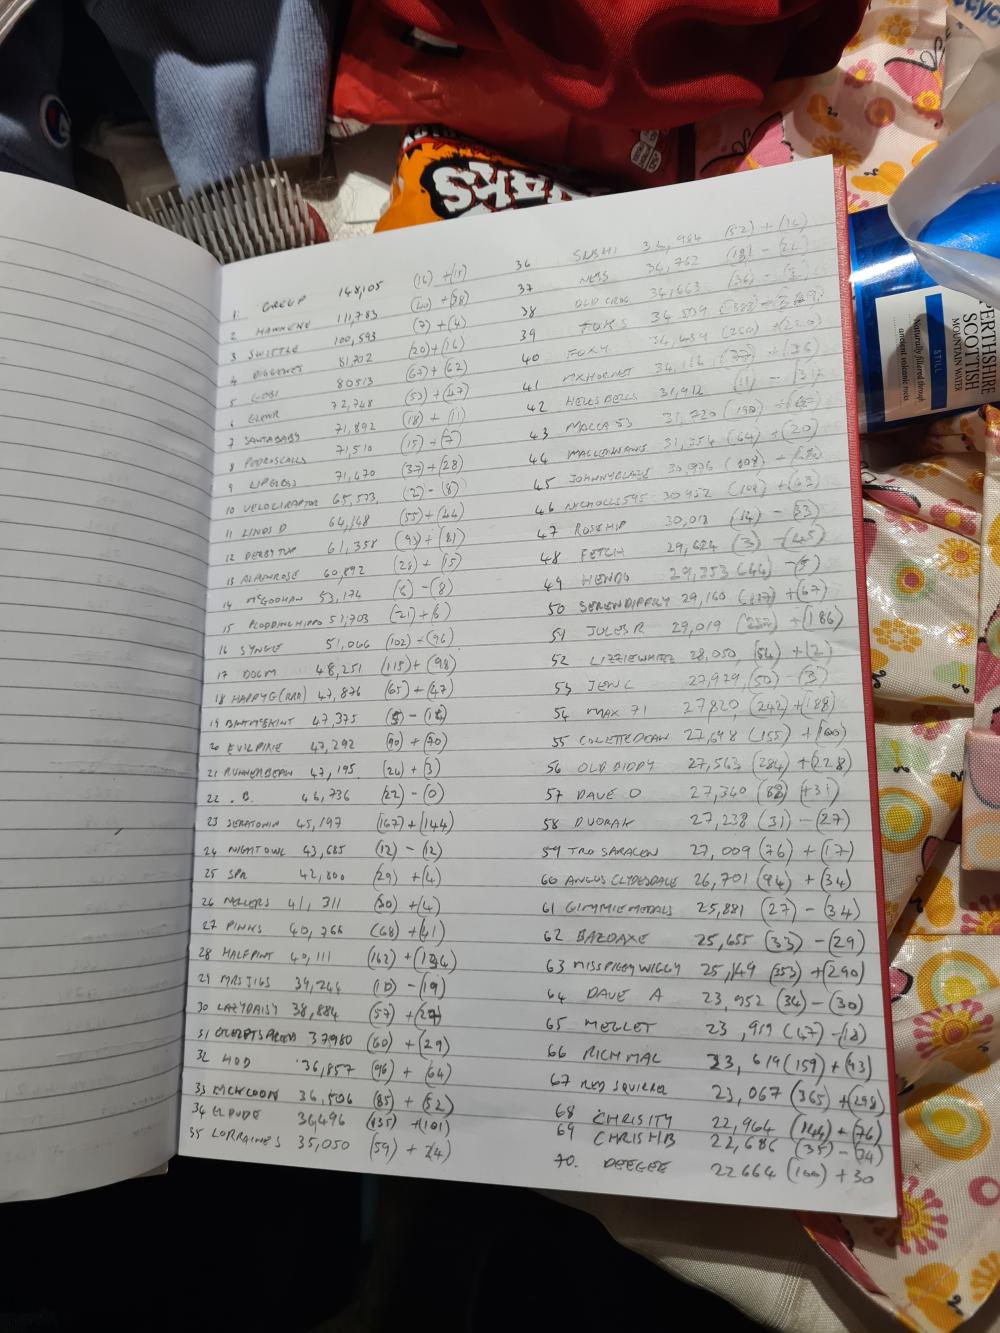 1. GREEP 148,105 (16) + (15)
2 HAWKENE 111,783 (40) + (38)
3 SWITTLE 100,593 (7) + (4)
4 DIOGENES 81,702 (20) + (16)
5 GOBI 80513 (67) + (62)
6 72,748 (53) + (47)
7 SANTABABY 71,892 (18) + (11)
8 PEDROSCALLS 71,510 (15) + (7)
9 LIPGLOSS 71,470 (37) + (28)
10 VELOCIRAPTOR 65,573 (2) - (8)
11 LINDS D 64,148 (55) + (44)
12 DERBYTUP 61,358 (93) + (81)
13 ALANROSE 60,892 (28) + (15)
14 MCGOOHAN 53,174 (6) - (8)
15 PLODDINGHIPPO 51,703 (21) + (6)
16 SYNGLE 51,066 (102) + (96)
17 DOCM 48,251 (115) + (98)
18 HAPPYG(RRD) 47,876 (65) + (47)
19 47,375 - (14)
20 EVILPIXIE 47,292 (90) + (70)
21 RUNNERBEAN 47,195 (24) + (3)
22 . B. 46,736 (22) - (0)
23 SERATONIN 45,197 (167) + (144)
24 NIGHTOWL 43,685 (12) - (12)
25 SPR 42,800 (29) + (4)
26 MELLERS 41,311 (30) + (4)
27 PINKS 40,766 (68) + (41)
28 HALFPINT 40,111 (162) +
29 MRSJIGS 39,244 (10) - (19)
30 LAZYDAISY 38,884 (57) + (27)
31 37,980 (60) + (29)
32 HOD 36,857 (96) + (64)
33 RACKCOON 36,506 (85) + (52)
34 CLAUDE 36,496 (135) + (101)
35 LORRAINES 35,050 (59) + (24)
36 SUSHI 34,984 (52) + (16)
37 NESS 34,762 (18) -
38 OLD CROC 34,663 (36) -
39 34,539
40 FOXY 34,439 (260) + (220)
41 MXHORNET 34,116 + (36)
42 HELLSBELLS 31,912 (11) - (31)
43 MACCA 53 31,720 (190) +
44 31,354 (64) + (20)
45 JOHNNYBLAZE 30,976 (108) +
46 NICHOLLS595 30,952 (109) + (63)
47 ROSEHIP 30,018 (14) - (33)
48 FETCH 29,624 (3) - (45)
49 HENDO 29,353 (44) - (5)
50 SERENDIPPILY 29,160 (117) + (67)
51 JULES R 29,019 + (186)
52 LIZZIEWHIZZ 28,050 (54) + (2)
53 JEN C 27,929 (50) - (3)
54 MAX 71 27,820 (242) + (188)
55 COLETTEDEAN 27,698 (155) + (100)
56 OLD DIDDY 27,563 (284) + (228)
57 DAVE O 27,340 (88) + 31)
58 DVORAK 27,238 (31) - (27)
59 TRO SARACEN 27,009 (76) + (17)
60 ANGUS CLYDESDALE 26,701 (94) + (34)
61 GIMMIEMEDALS 25,881 (27) - (34)
62 BAZDAXE 25,655 (33) - (29)
63 MISSPIGGYWIGGY 25,149 (353) + (290)
64 DAVE A 23,952 (34) - (30)
65 MELLET 23,919 (47) - (18)
66 RICHMAC 23,619 (159) + (93)
67 RED SQUIRREL 23,067 (365) + (298)
68 CHRISITY 22,964 (144) + (76)
69 CHRISHB 22,686 (35) - (34)
70. DEEGEE 22664 (100) + 30
STILL
Naturally filtered through
ancient volcanic rocks
PERTHSHIRE
SCOTTISH
MOUNTAIN WATER